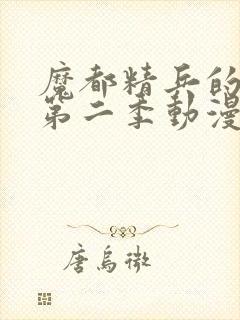 魔都精兵的
第二季動漫
唐烏微